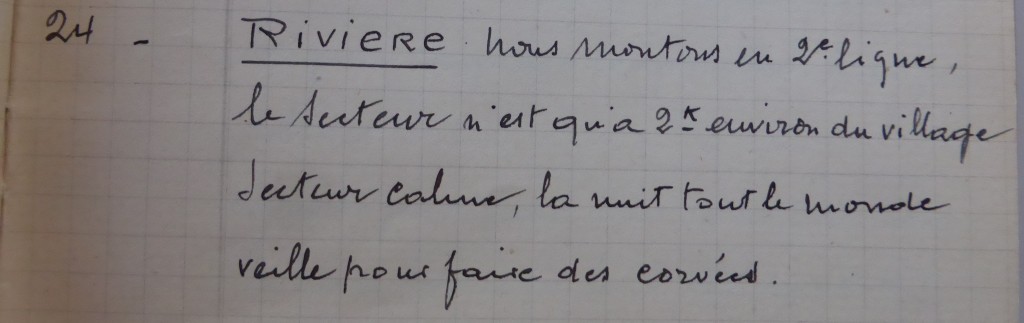 24 - RIVIERE nous montons en 2e ligne,
le secteur n'est qu'a 2K environ du village
secteur calme, la nuit tout le monde
veille pour faire des corvées.